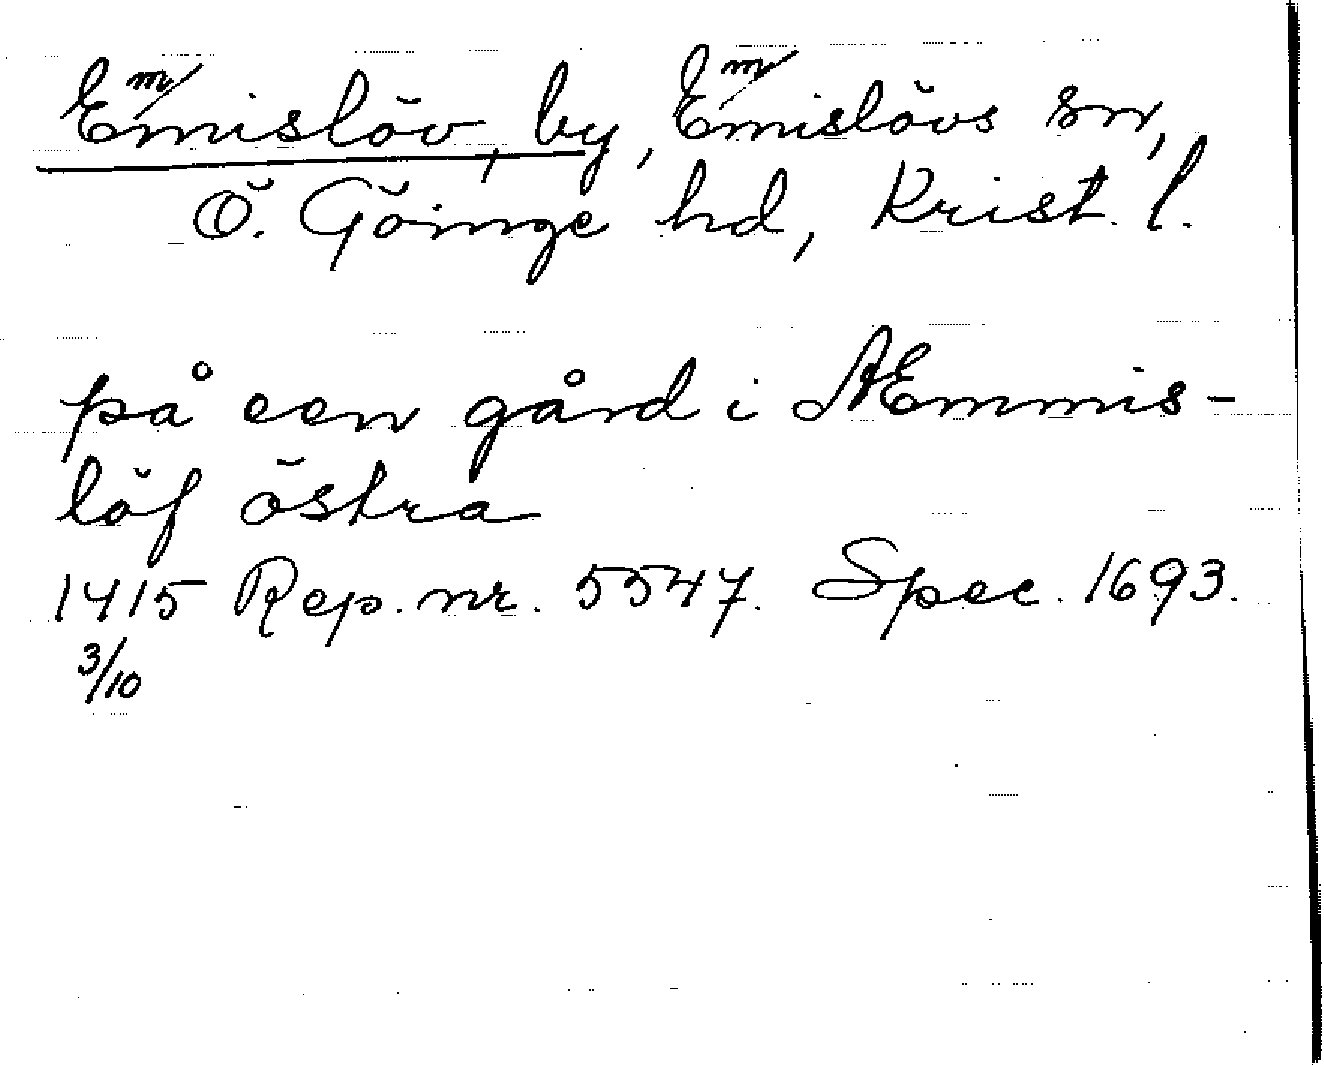 Emmislöv, by, Emmislövs sn,
Ö. Göinge hd, Krist. l.
på een gård i AEmmis-
löf östra
1415 Rep. nr. 5547. Spec. 1693.
3/10